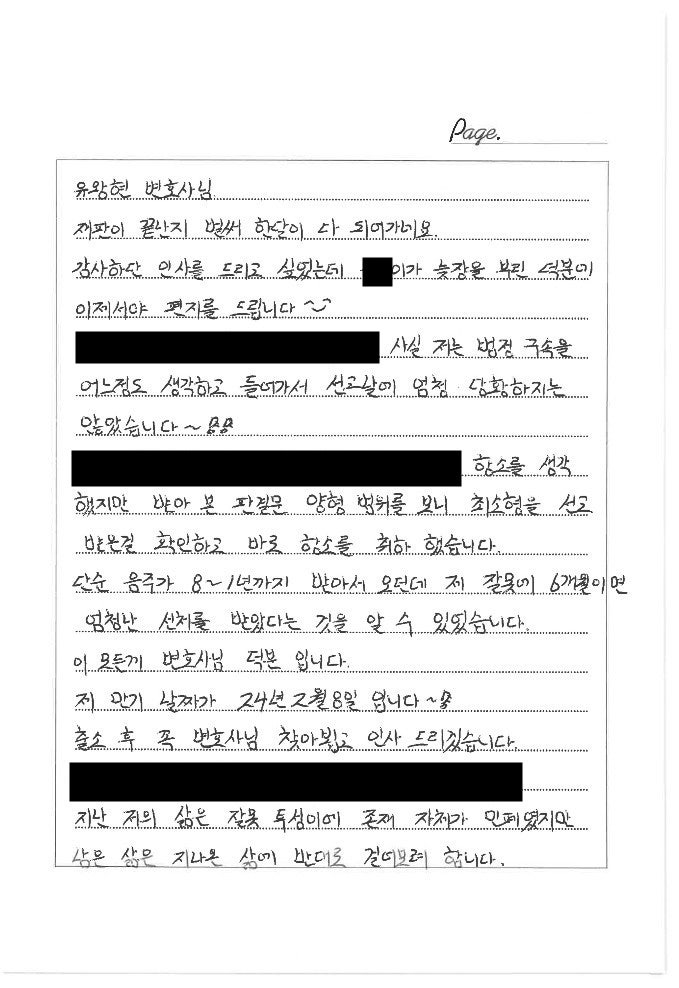 Page.
유왕현 변호사님
재판이 끝난지 벌써 한달이 다 되어가네요.
감사하단 인사를 드리고 싶었는데 이가 늦장을 부린 덕분에
이제서야 편지를 드립니다 ~
사실 저는 법정 구속을
어느정도 생각하고 들어가서 선고날에 엄청 당황하지는
않았습니다~
항소를 생각
했지만 받아 본 판결문 양형 범위를 보니 최소형을 선고
받은걸 확인하고 바로 항소를 취하 했습니다.
단순 음주가 8~1년까지 받아서 오던데 제 잘못에 6개월이면
엄청난 선처를 받았다는 것을 알 수 있었습니다.
이 모든게 변호사님 덕분 입니다.
제 만기 날짜가 24년 2월 8일 입니다~
출소 후 꼭 변호사님 찾아뵙고 인사 드리겠습니다.
지난 저의 삶은 잘못 투성이에 존재 자체가 민폐였지만
남은 삶은 지나온 삶에 반대로 걸어보려 합니다.